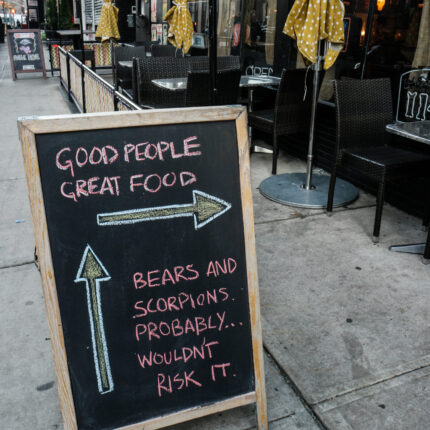 GOOD PEOPLE
GREAT FOOD
BEARS AND
SCORPIONS.
PROBABLY...
WOULDN'T
RISK IT.